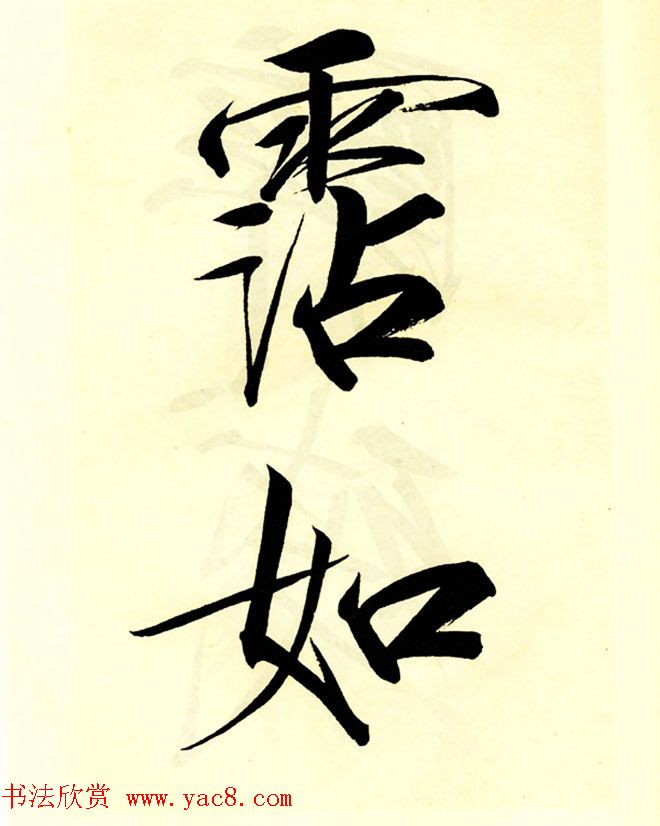 霑如
书法欣赏 www.yac8.com